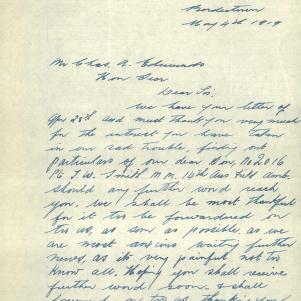 Bordertown
May 4th 1919
Mr Chas. A. Edwards
Hon Sec
Dear Sir.
We have your letter of
Apr 23rd and must thank you very much
for the interest you have taken
in our sad trouble, finding out
particulars of our dear Son, No 2016
Pte J. W. Smith M.M. 14th Aus Fld Amb.
should any further word reach
you, we shall be most thankful
for it to be forwarded on
to us, as soon as possible, as we
are most anxious waiting further
news, as its very painful not to
know all. Hoping you shall receive
further word soon. & shall